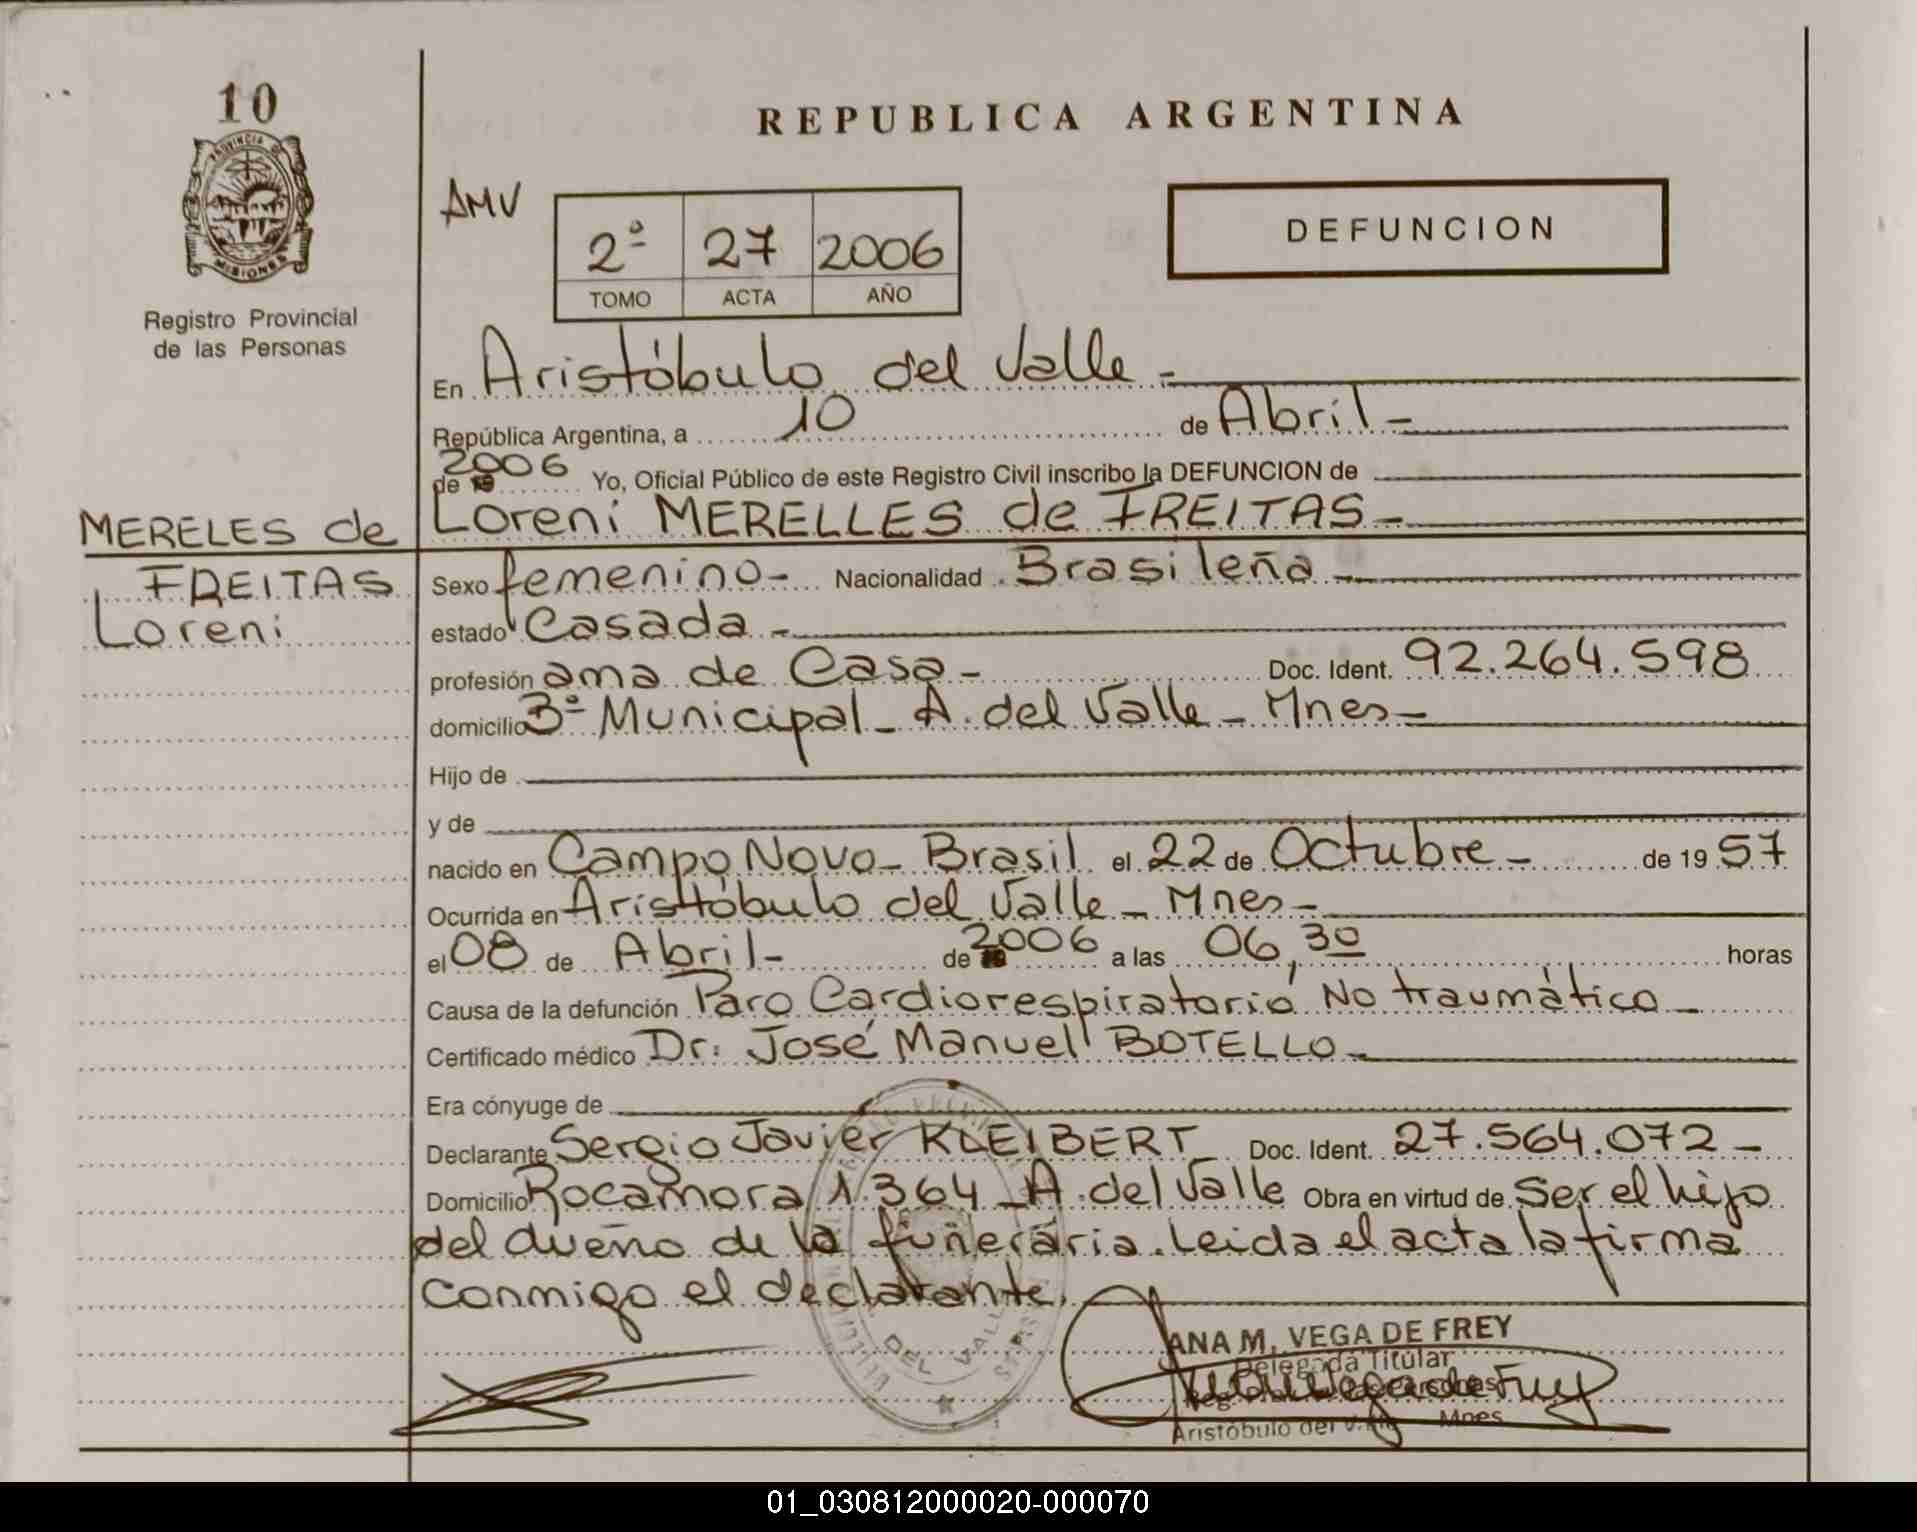 10
PROVINCIA DE
MISIONES
Registro Provincial
de las Personas
REPUBLICA ARGENTINA
AMV
2º 27 2006
TOMO ACTA AÑO
DEFUNCION
En Aristóbulo del Valle -
República Argentina, a 10 de Abril -
de 19 2006 Yo, Oficial Público de este Registro Civil inscribo la DEFUNCION de
MERELES de
FREITAS
Loreni
Loreni MERELLES de FREITAS -
Sexo femenino - Nacionalidad Brasileña -
estado Casada -
profesión ama de Casa - Doc. Ident. 92.264.598
domicilio 3º Municipal - A. del Valle - Mnes -
Hijo de
y de
nacido en Campo Novo - Brasil el 22 de Octubre - de 19 57
Ocurrida en Aristóbulo del Valle - Mnes -
el 08 de Abril - de 19 2006 a las 06,30 horas
Causa de la defunción Paro Cardiorespiratorio No traumático -
Certificado médico Dr. José Manuel BOTELLO -
Era cónyuge de
Declarante Sergio Javier KLEIBERT Doc. Ident. 27.564.072 -
Domicilio Rocamora 1.364 - A. del Valle Obra en virtud de Ser el hijo
del dueño de la funeraria. Leida el acta la firma
conmigo el declarante.
DEL VALLE
ANA M. VEGA DE FREY
Delegada Titular
Aristóbulo del V. Mnes
01_030812000020-000070